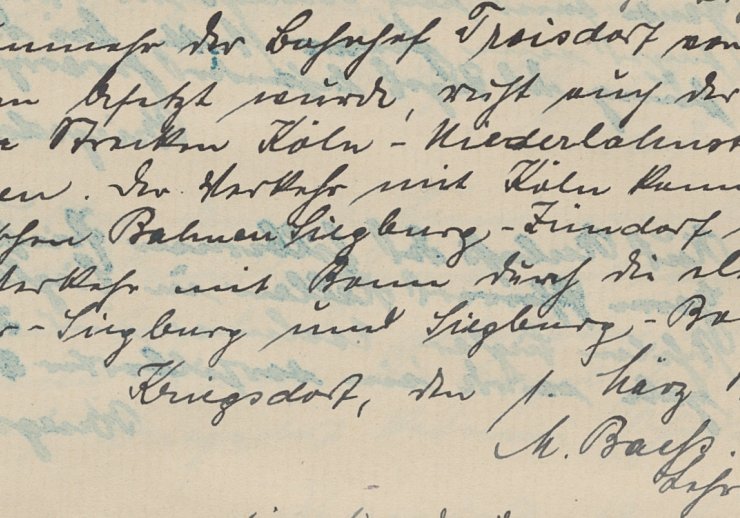 nunmehr der Bahnhof Troisdorf von
en besetzt wurde, ruht auch der
Strecken Köln - Niederlahnst
en. Der Verkehr mit Köln kann
schen Bahnen Siegburg - Zündorf
Verkehr mit Bonn durch die el
r - Siegburg und Siegburg - Bo
Kriegsdorf, den 1. März 1
M. Baeß.
Lehr